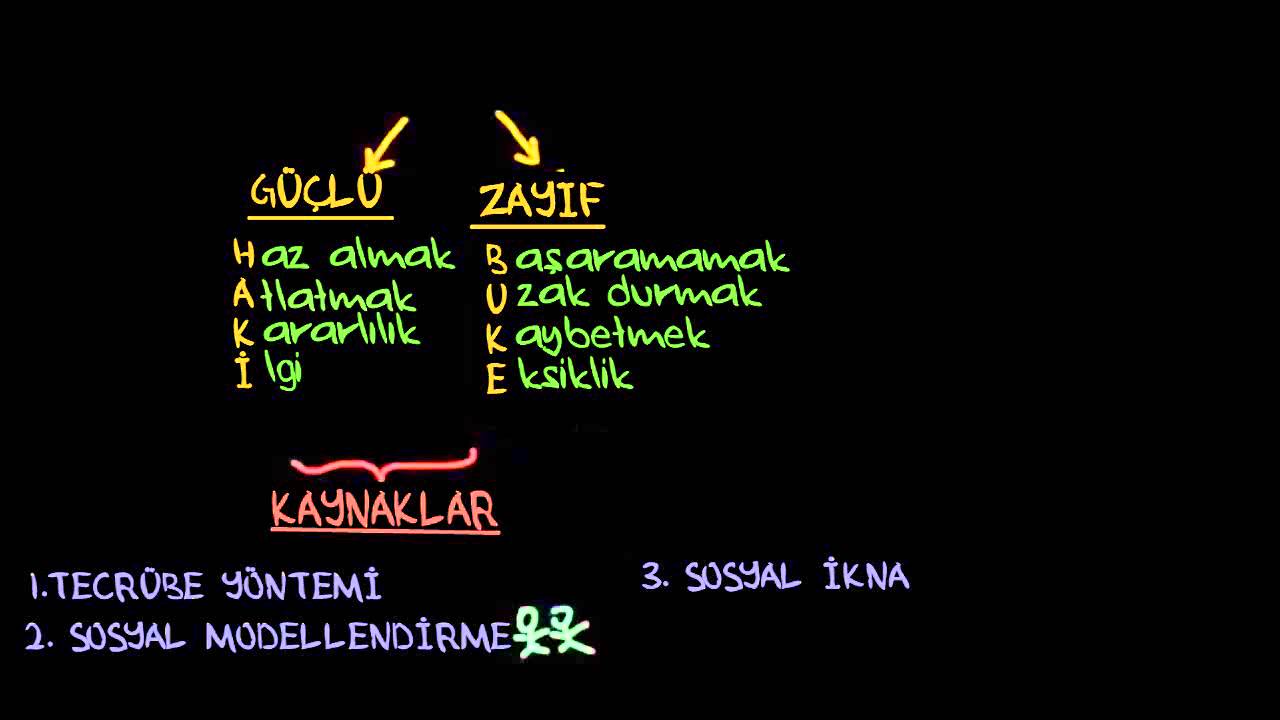 GÜÇLÜ
Haz almak
Atlatmak
Kararlılık
İlgi
ZAYİF
Başaramamak
Uzak durmak
Kaybetmek
Eksiklik
KAYNAKLAR
1.TECRÜBE YÖNTEMİ
2. SOSYAL MODELLENDİRME
3. SOSYAL İKNA